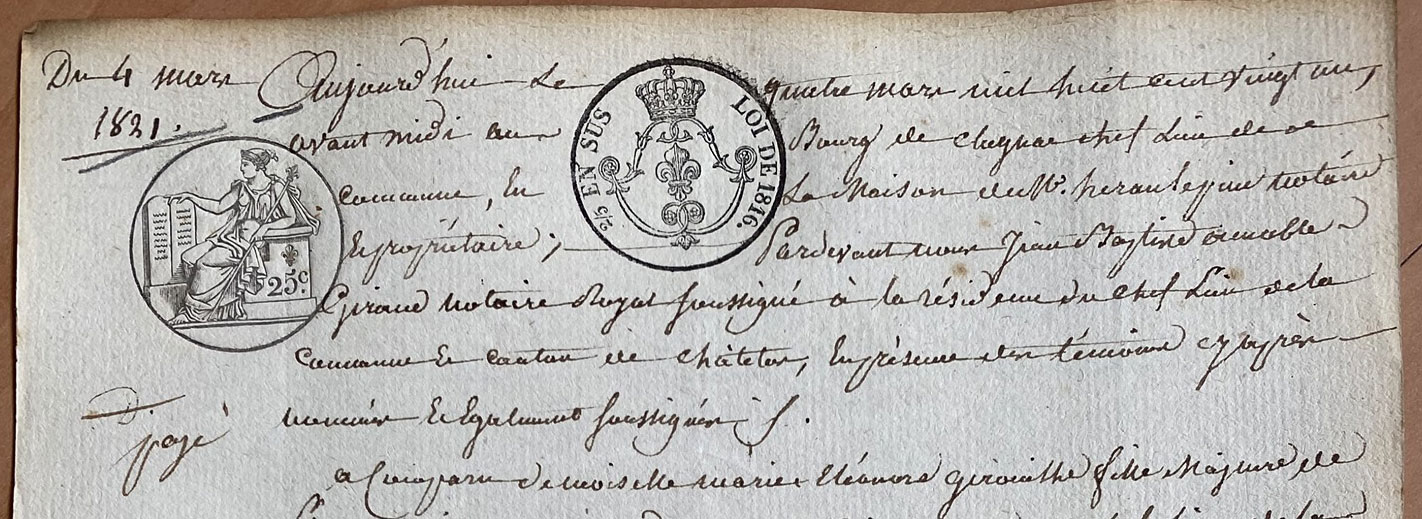 Du 4 mars
1821.
Aujourd'hui Le quatre mars mil huit cent vingt un,
avant midi au Bourg de chef Lieu de
commune, En La Maison de Mr. notaire
Et propriétaire; Pardevant nous Jean Baptiste aimable
Giraud notaire Royal soussigné à la résidence du chef Lieu de la
commune et canton de Châtelus, En présence des témoins cy après
nommés Et Egalement soussignés
a Comparu demoiselle marie Eléonore fille Majeure de
2/5 EN SUS
LOI DE 1816.
25c
payé